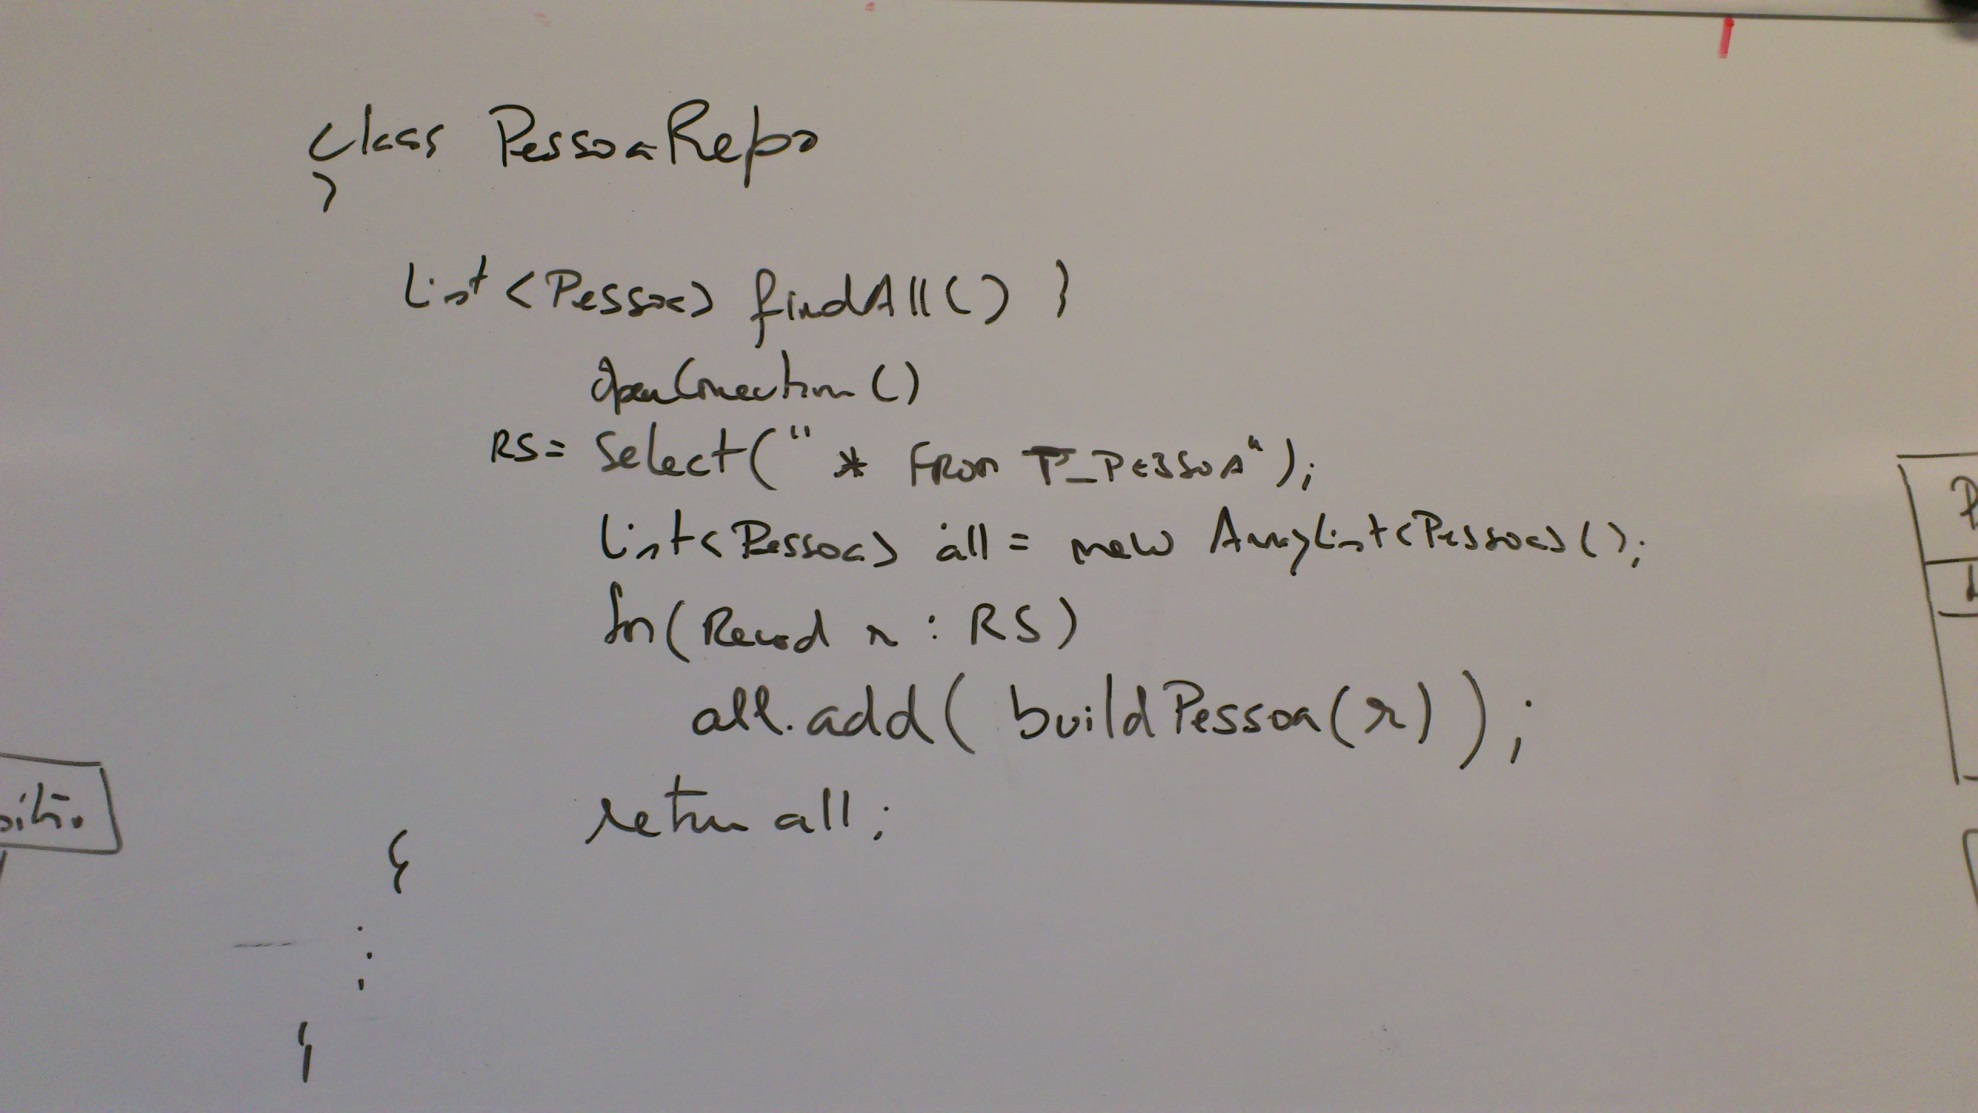 class PessoaRepo
}
List<Pessoa> findAll() }
openConnection()
RS= Select(" * FROM T_PESSOA");
List<Pessoa> all = new ArrayList<Pessoa>();
for(Record r : RS)
all.add( buildPessoa(r) );
return all;
{
:
{